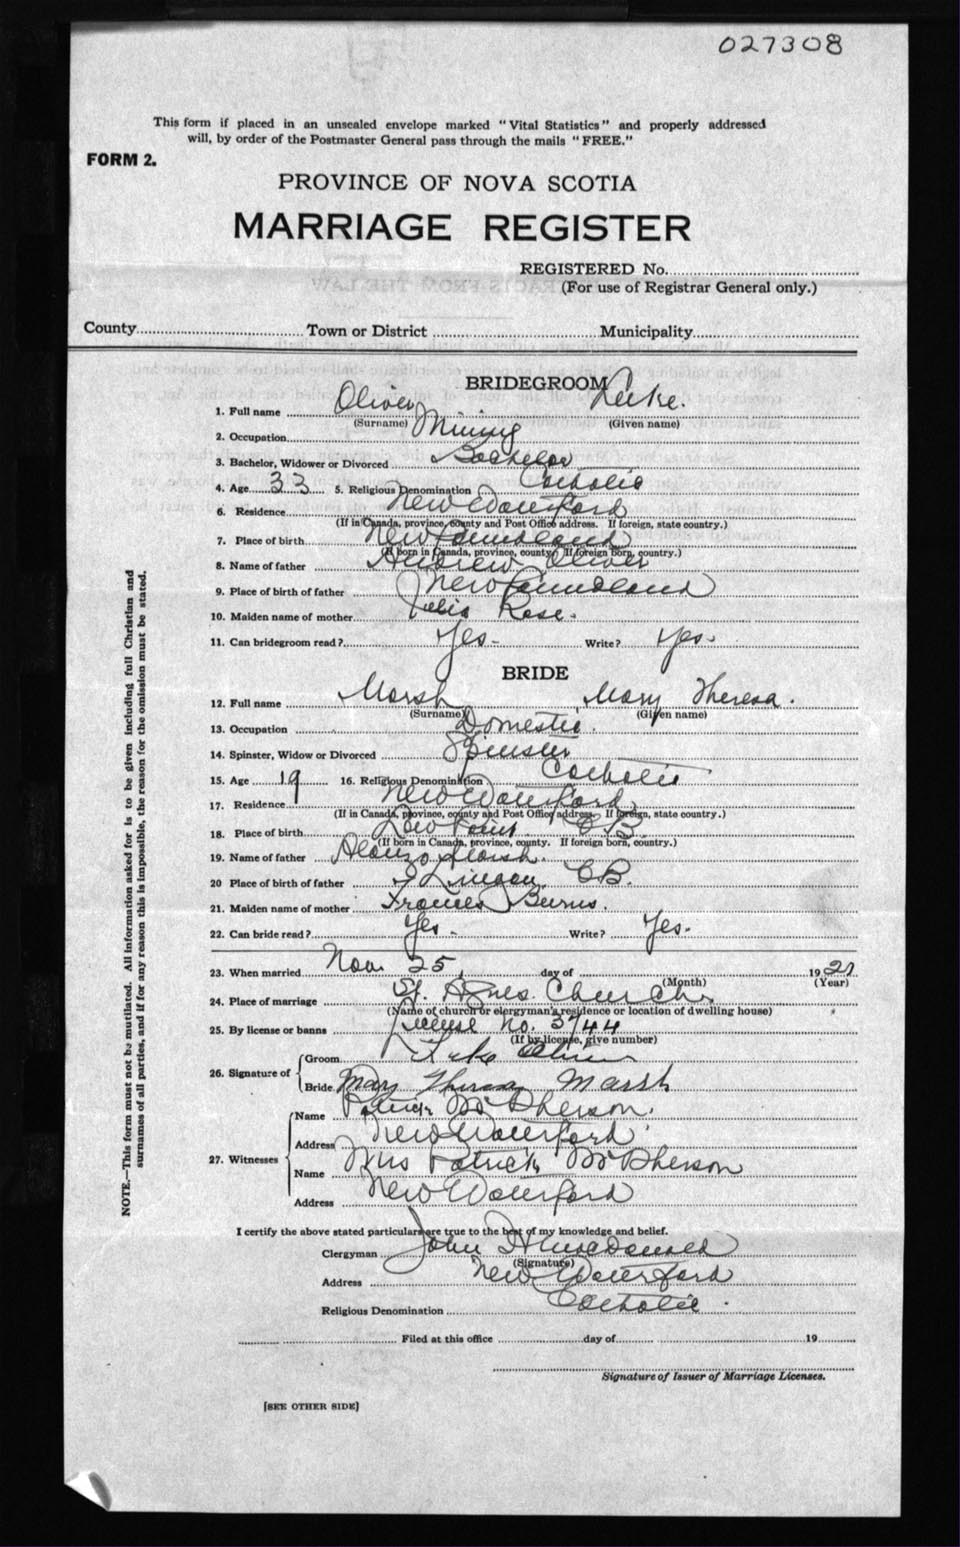 027308
This form if placed in an unsealed envelope marked "Vital Statistics" and properly addressed
will, by order of the Postmaster General pass through the mails "FREE."
FORM 2.
PROVINCE OF NOVA SCOTIA
MARRIAGE REGISTER
REGISTERED No.
(For use of Registrar General only.)
County Town or District Municipality
BRIDEGROOM
1. Full name Oliver Luke.
(Surname) (Given name)
2. Occupation Mining
3. Bachelor, Widower or Divorced Bachelor
4. Age 33 5. Religious Denomination Catholic
6. Residence New Waterford
(If in Canada, province, county and Post Office address. If foreign, state country.)
7. Place of birth Newfoundland
(If born in Canada, province, county. If foreign born, country.)
8. Name of father Andrew Oliver
9. Place of birth of father Newfoundland
10. Maiden name of mother Julia Rose.
11. Can bridegroom read? Yes - Write? Yes-
BRIDE
12. Full name Marsh Mary Theresa.
(Surname) (Given name)
13. Occupation Domestic.
14. Spinster, Widow or Divorced Spinster
15. Age 19 16. Religious Denomination Catholic
17. Residence New Waterford
(If in Canada, province, county and Post Office address. If foreign, state country.)
18. Place of birth Low Point C B.
(If born in Canada, province, county. If foreign born, country.)
19. Name of father Alonzo Marsh.
20 Place of birth of father Lingan, CB.
21. Maiden name of mother Frances Burns.
22. Can bride read? Yes - Write? Yes.
23. When married Nov. 25, day of 19
(Month) (Year)
24. Place of marriage St. Agnes Church.
(Name of church or clergyman's residence or location of dwelling house)
25. By license or banns License No. 3744
(If by license, give number)
26. Signature of Groom Luke Oliver
Bride Mary Theresa Marsh
27. Witnesses Name Patrick McPherson.
Address New Waterford
Name Mrs Patrick McPherson
Address New Waterford
I certify the above stated particulars are true to the best of my knowledge and belief.
Clergyman John H Macdonald
(Signature)
Address New Waterford
Religious Denomination Catholic.
Filed at this office day of 19
Signature of Issuer of Marriage Licenses.
[SEE OTHER SIDE]
NOTE.—This form must not be mutilated. All information asked for is to be given including full Christian and
surnames of all parties, and if for any reason this is impossible, the reason for the omission must be stated.